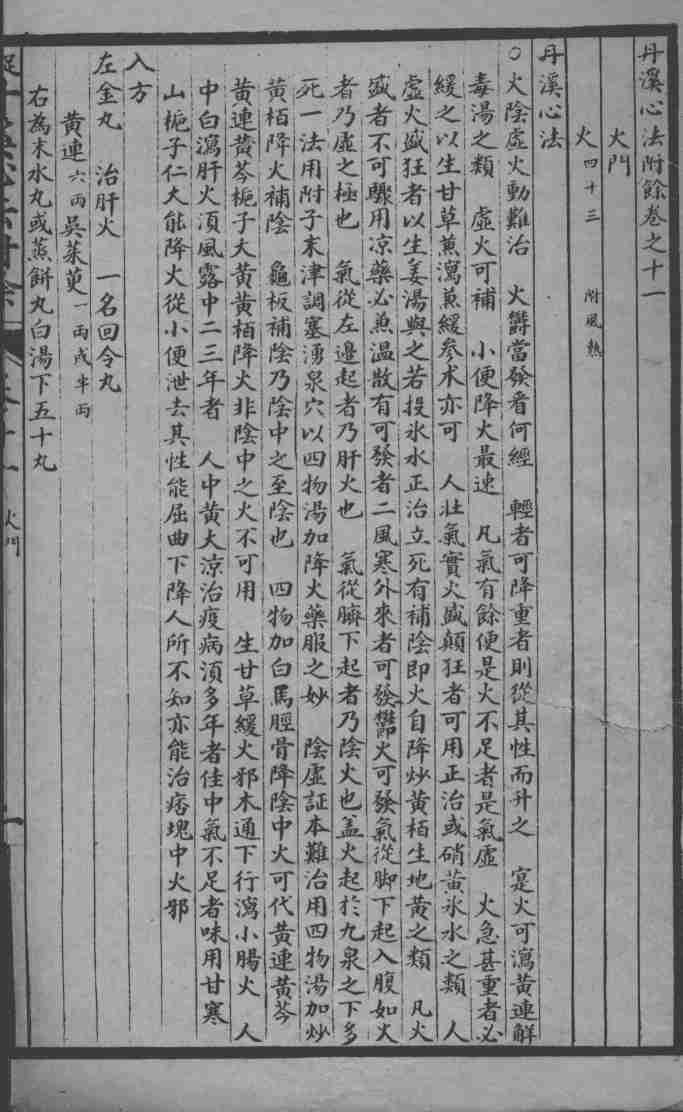 丹溪心法附餘卷之十一
火門
火 四十三 附風熱
丹溪心法
○火陰虛火動難治 火欝當發看何經 輕者可降重者則從其性而升之 寔火可瀉黃連解
毒湯之類 虛火可補 小便降火最速 凡氣有餘便是火不足者是氣虛 火急甚重者必
緩之以生甘草蒸瀉蒸緩參术亦可 人壯氣實火盛顛狂者可用正治或硝黃氷水之類 人
虛火盛狂者以生姜湯與之若投氷水正治立死有補陰即火自降炒黃栢生地黃之類 凡火
盛者不可驟用凉藥必蒸溫散有可發者二風寒外來者可發欝火可發氣從脚下起入腹如火
者乃虛之極也 氣從左邉起者乃肝火也 氣從臍下起者乃陰火也盖火起於九泉之下多
死一法用附子末津調塞湧泉穴以四物湯加降火藥服之妙 陰虛証本難治用四物湯加炒
黃栢降火補陰 龜板補陰乃陰中之至陰也 四物加白馬脛骨降陰中火可代黃連黃芩
黃連黃芩梔子大黃黃栢降火非陰中之火不可用 生甘草緩火邪木通下行瀉小腸火 人
中白瀉肝火湏風露中二三年者 人中黃大凉治疫病湏多年者佳中氣不足者味用甘寒
山梔子仁大能降火從小便泄去其性能屈曲下降人所不知亦能治痞塊中火邪
入方
左金丸 治肝火 一名回令丸
黃連六両吳茱萸一両或半両
右為末水丸或蒸餅丸白湯下五十丸
火門